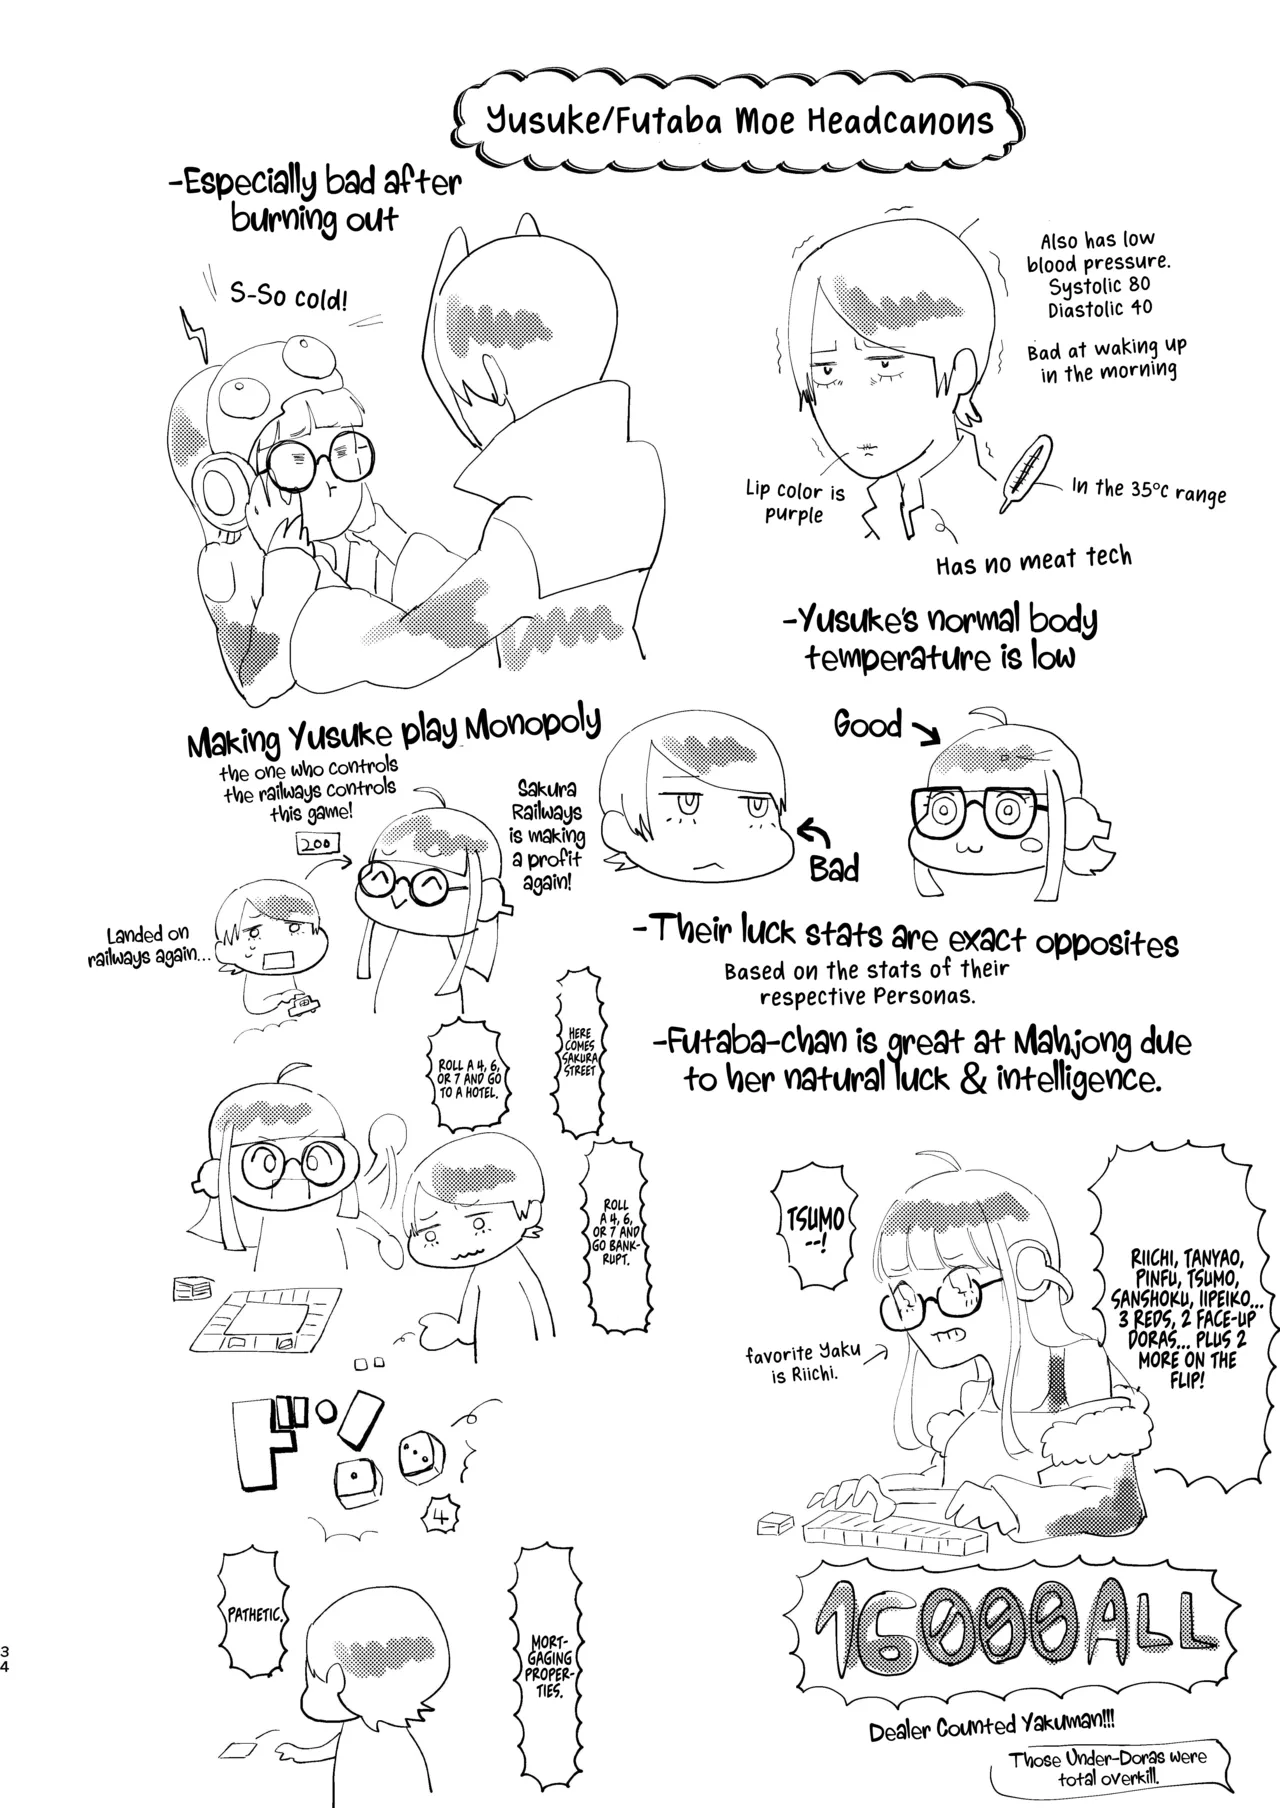 Yusuke/Futaba Moe Headcanons
Also has low
blood pressure.
Systolic 80
Diastolic 40
Bad at waking up
in the morning
Lip color is
purple
In the 35°C range
Has no meat tech
-Yusuke's normal body
temperature is low
-Especially bad after
burning out
S-So cold!
Good
Bad
-Their luck stats are exact opposites
Based on the stats of their
respective Personas.
-Futaba-chan is great at Mahjong due
to her natural luck & intelligence.
Making Yusuke play Monopoly
the one who controls
the railways controls
this game!
200
Sakura
Railways
is making
a profit
again!
Landed on
railways again...
HERE
COMES
SAKURA
STREET
ROLL A 4, 6,
OR 7 AND GO
TO A HOTEL.
ROLL
A 4, 6,
OR 7 AND
GO BANK-
RUPT.
ドンッ
4
MORT-
GAGING
PROPER-
TIES.
PATHETIC.
RIICHI, TANYAO,
PINFU, TSUMO,
SANSHOKU, IIPEIKO...
3 REDS, 2 FACE-UP
DORAS... PLUS 2
MORE ON THE
FLIP!
TSUMO
--!
favorite Yaku
is Riichi.
16000ALL
Dealer Counted Yakuman!!!
Those Under-Doras were
total overkill.
34